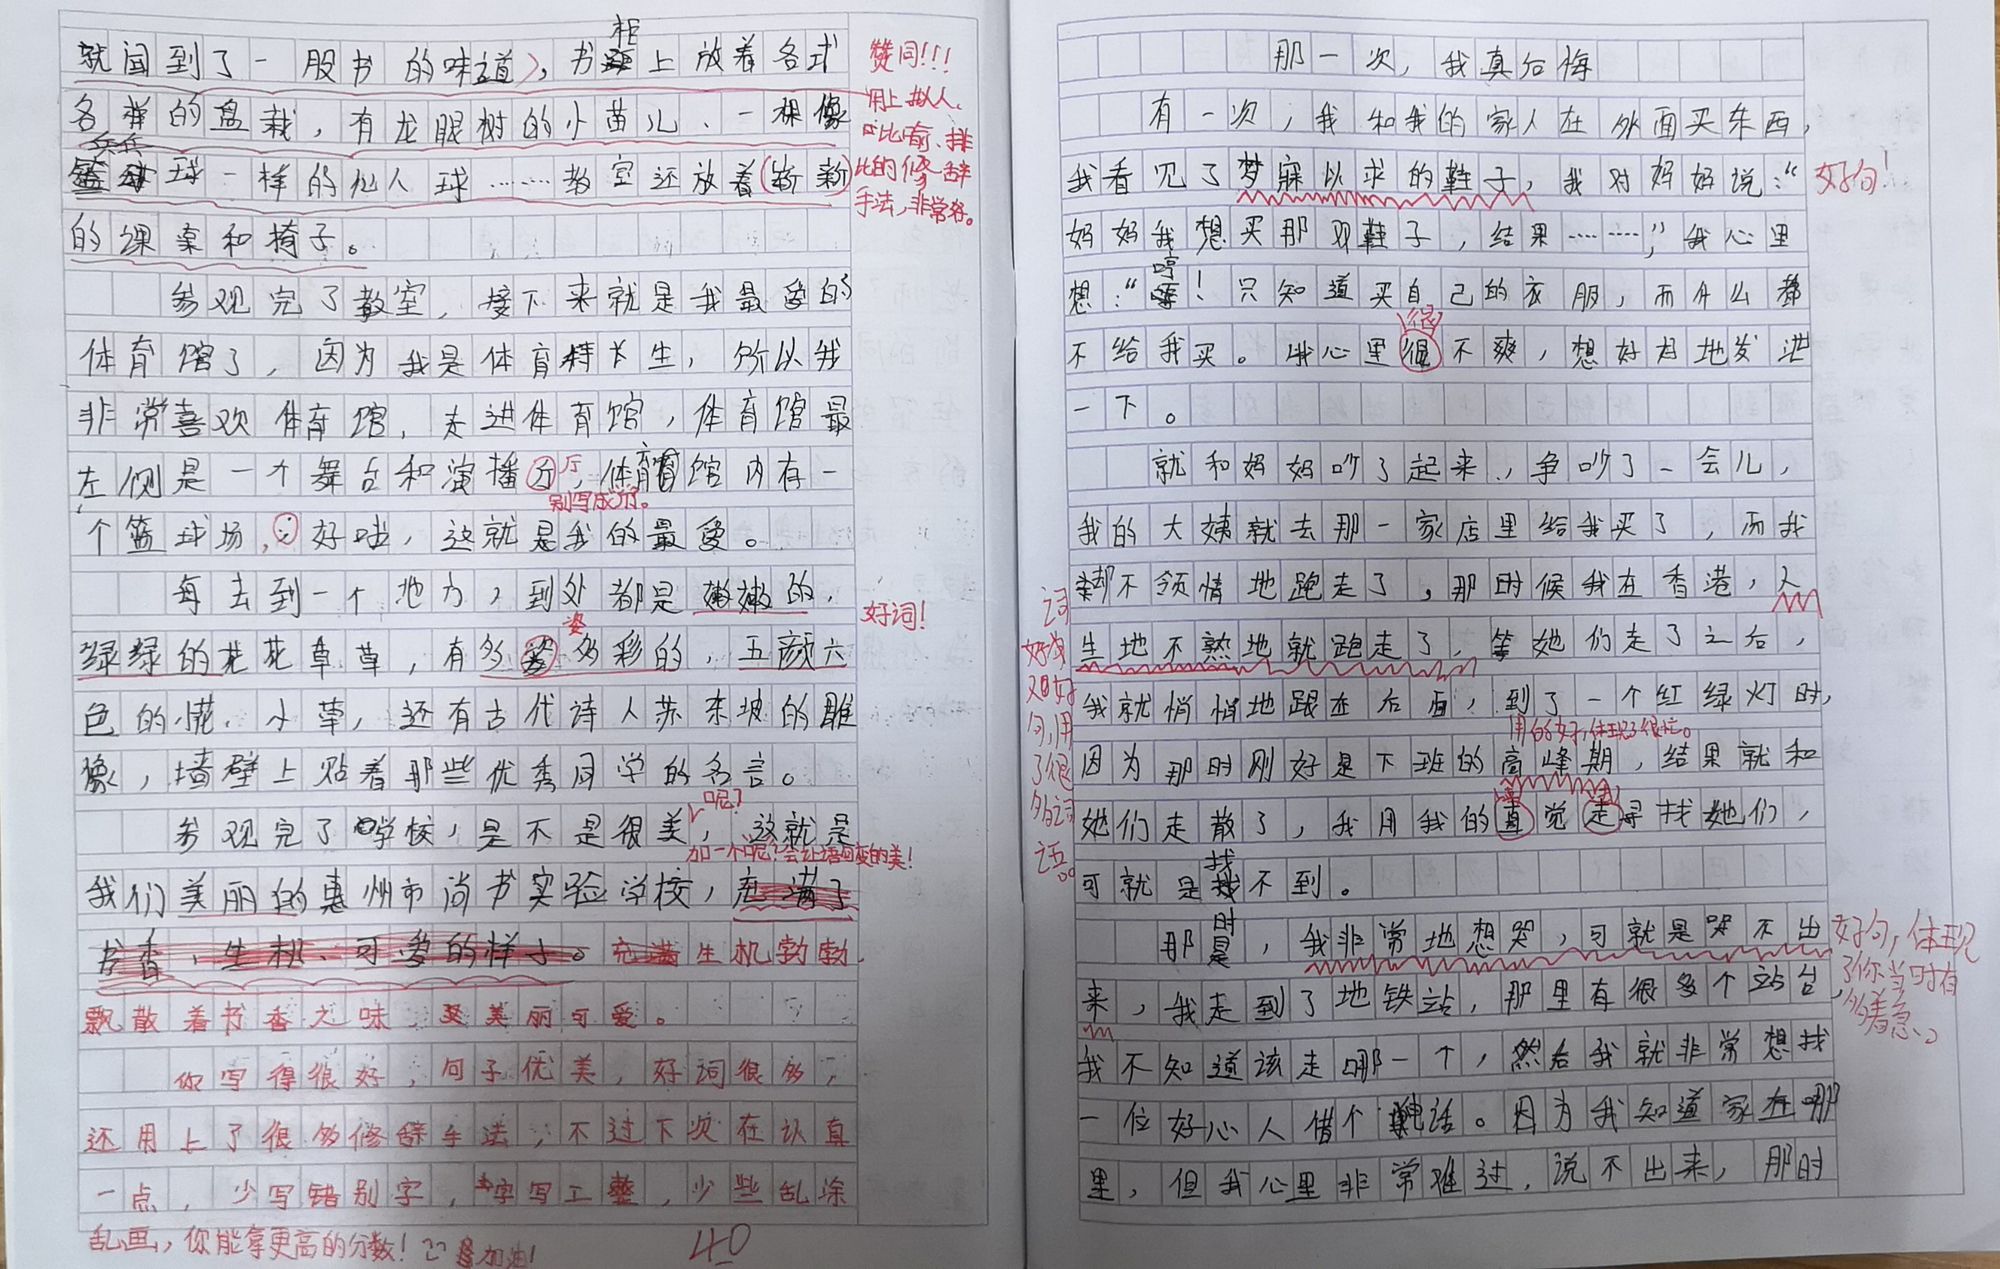 就闻到了一股书的味道，书柜上放着各式
各样的盆栽，有龙眼树的小苗儿、一棵像
乒乓球一样的仙人球……教室还放着(崭新)
的课桌和椅子。
赞同!!!
用上拟人、
比喻、排
比的修辞
手法,非常好。
参观完了教室，接下来就是我最爱的
体育馆了，因为我是体育特长生，所以我
非常喜欢体育馆，走进体育馆，体育馆最
左侧是一个舞台和演播厅，体育馆内有一
厅
别写成万。
个篮球场，好哇，这就是我的最爱。
每去到一个地方，到处都是嫩嫩的，
好词!
绿绿的花花草草，有多姿多彩的，五颜六
姿
色的花、小草，还有古代诗人苏东坡的雕
像，墙壁上贴着那些优秀同学的名言。
呢?
参观完了学校，是不是很美，这就是
加一个"呢?"会让语句变的美!
我们美丽的惠州市尚书实验学校，充满了
书香、生机、可爱的样子。充满生机勃勃
飘散着书香之味，又美丽可爱。
你写得很好，句子优美，好词很多，
还用上了很多修辞手法，不过下次在认真
一点，少写错别字，字写工整，少些乱涂
乱画，你能拿更高的分数!加油!
40
那一次，我真后悔
有一次，我和我的家人在外面买东西，
我看见了梦寐以求的鞋子，我对妈妈说：“
好句!
妈妈我想买那双鞋子，结果……”，我心里
想：“哼！只知道买自己的衣服，而什么都
不给我买。我心里很不爽，想好好地发泄
很
一下。
就和妈妈吵了起来，争吵了一会儿，
我的大姨就去那一家店里给我买了，而我
却不领情地跑走了，那时候我在香港，人
生地不熟地就跑走了，等她们走了之后，
词
好句
又好
句,用
了很
多词
语。
我就悄悄地跟在后面，到了一个红绿灯时，
用的好,体现了很忙。
因为那时刚好是下班的高峰期，结果就和
她们走散了，我用我的直觉走寻找她们，
可就是找不到。
那时，我非常地想哭，可就是哭不出
来，我走到了地铁站，那里有很多个站台，
好句,体现
了你当时有
多着急。
我不知道该走哪一个，然后我就非常想找
一位好心人借个电话。因为我知道家在哪
里，但我心里非常难过，说不出来，那时